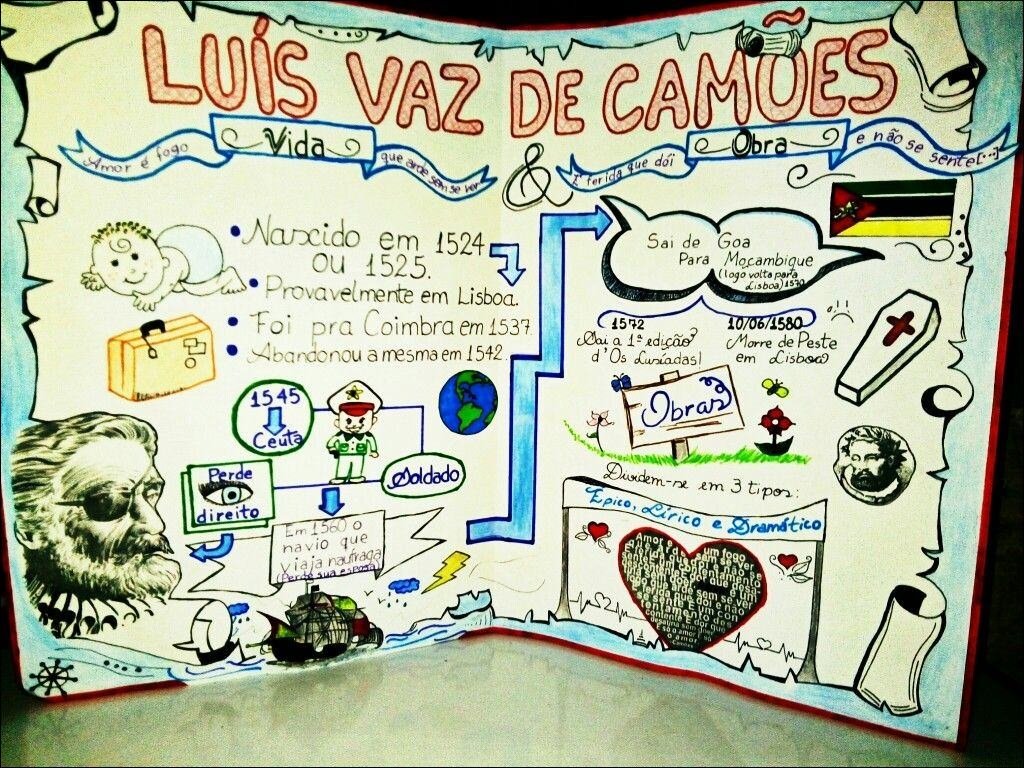 LUÍS VAZ DE CAMÕES
Amor é fogo
Vida
que arde sem se ver
&
É ferida que dói
Obra
e não se sente[...]
• Nascido em 1524
ou 1525.
• Provavelmente em Lisboa.
• Foi pra Coimbra em 1537
• Abandonou a mesma em 1542.
1545
Ceuta
Soldado
Perde
direito
Em 1560 o
navio que
viaja naufraga
(Perde sua esposa)
Sai de Goa
Para Moçambique
(logo volta para
Lisboa) 1570
1572
Sai a 1ª edição
d'Os Lusíadas!
10/06/1580
Morre de Peste
em Lisboa
Obras
Dividem-se em 3 tipos:
Épico, Lírico e Dramático